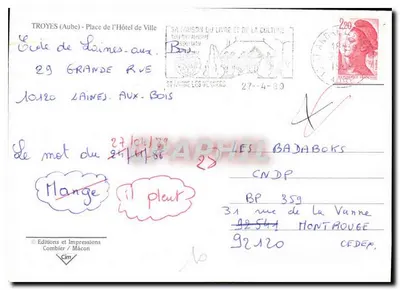 TROYES (Aube) - Place de l'Hôtel de Ville
Ecole de Laines-aux-Bois
29 GRANDE RUE
10120 LAINES. AUX. BOIS
LA MAISON DU LIVRE ET DE LA CULTURE
27-4-89
2,20
Le mot du
Mange
il pleut
LES BADABOKS
CNDP
BP 359
31 rue de la Vanne
92541 MONTROUGE
92120 CEDEX
© Editions et Impressions
Combier / Mâcon
Cim